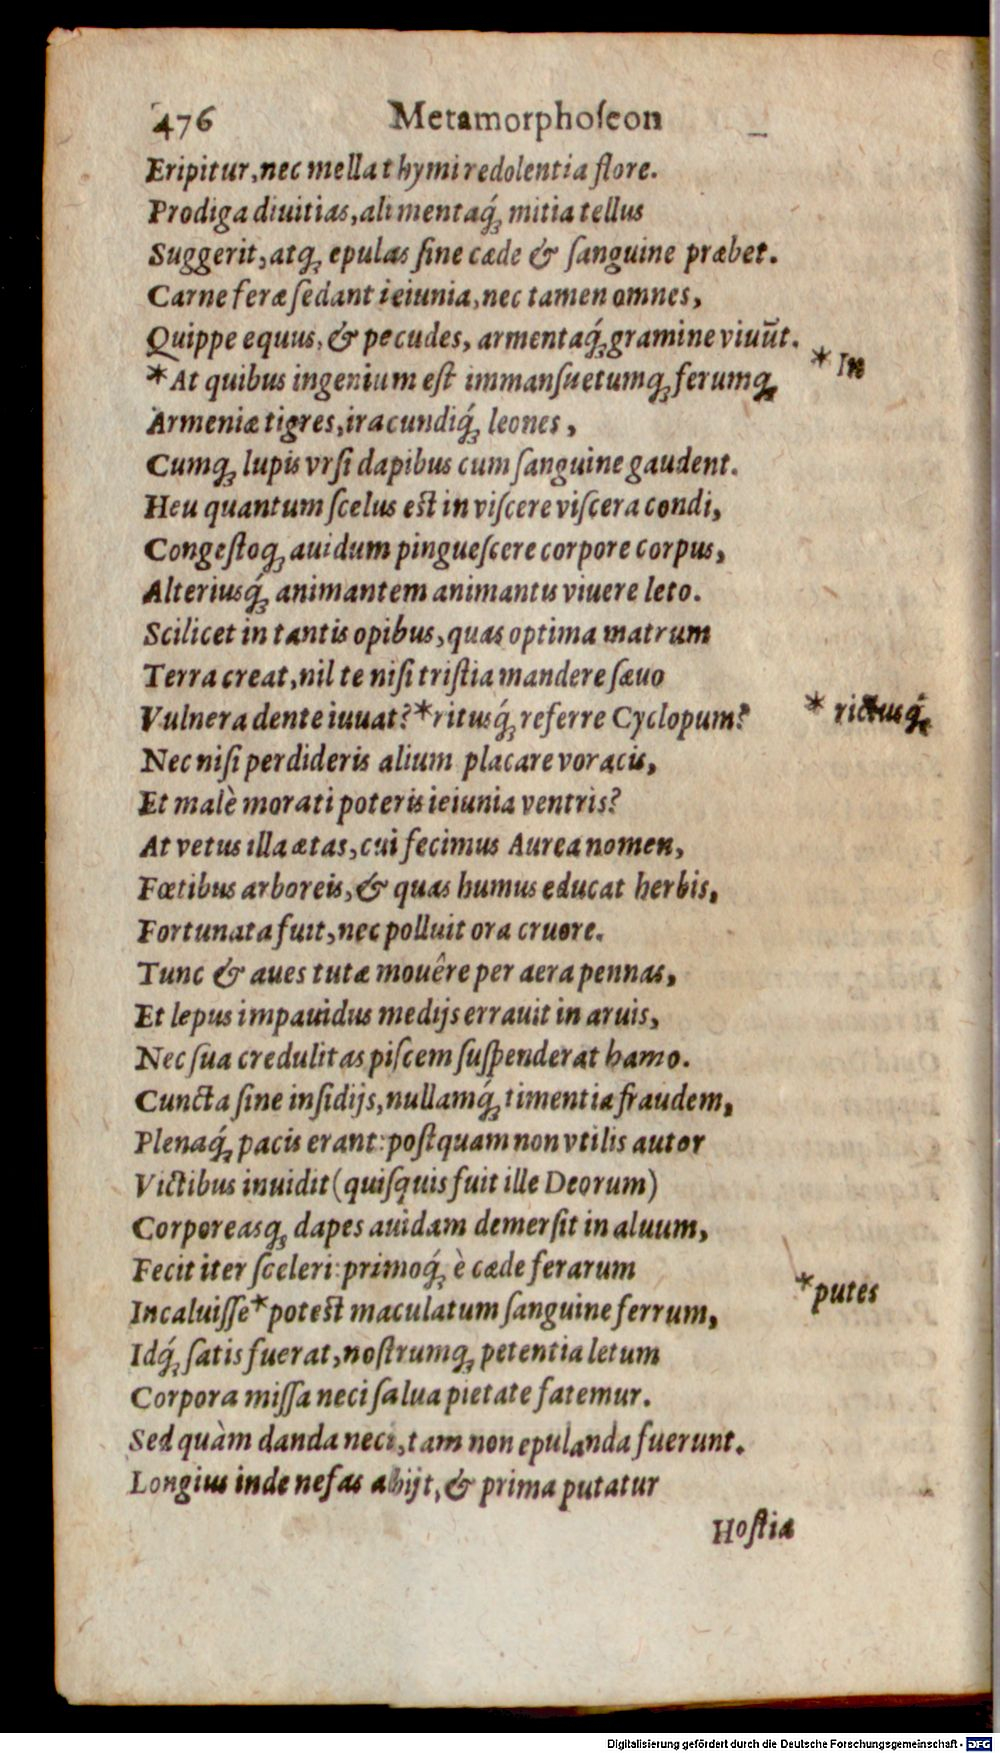 476 Metamorphoſeon
Eripitur, nec mella thymi redolentia flore.
Prodiga diuitias, alimentaq́; mitia tellus
Suggerit, atq; epulas ſine cæde & ſanguine præbet.
Carne feræ ſedant ieiunia, nec tamen omnes,
Quippe equus, & pecudes, armentaq́; gramine viuūt.
*At quibus ingenium eſt immanſuetumq; ferumq; * In
Armeniæ tigres, iracundiq́; leones,
Cumq; lupis vrſi dapibus cum ſanguine gaudent.
Heu quantum ſcelus eſt in viſcere viſcera condi,
Congeſtoq; auidum pingueſcere corpore corpus,
Alteriusq́; animantem animantis viuere leto.
Scilicet in tantis opibus, quas optima matrum
Terra creat, nil te niſi triſtia mandere ſæuo
Vulnera dente iuuat? *ritusq́; referre Cyclopum? * rictusq́;
Nec niſi perdideris alium placare voracis,
Et malè morati poteris ieiunia ventris?
At vetus illa ætas, cui fecimus Aurea nomen,
Fœtibus arboreis, & quas humus educat herbis,
Fortunata fuit, nec polluit ora cruore.
Tunc & aues tutæ mouêre per aera pennas,
Et lepus impauidus medijs errauit in aruis,
Nec ſua credulitas piſcem ſuſpenderat hamo.
Cuncta ſine inſidijs, nullamq́; timentia fraudem,
Plenaq́; pacis erant: poſtquam non vtilis autor
Victibus inuidit (quiſquis fuit ille Deorum)
Corporeasq; dapes auidam demerſit in aluum,
Fecit iter ſceleri: primoq́; è cæde ferarum
Incaluiſſe *poteſt maculatum ſanguine ferrum, *putes
Idq́; ſatis fuerat, noſtrumq; petentia letum
Corpora miſſa neci ſalua pietate fatemur.
Sed quàm danda neci, tam non epulanda fuerunt.
Longius inde nefas abijt, & prima putatur
Hoſtia
Digitalisierung gefördert durch die Deutsche Forschungsgemeinschaft - DFG